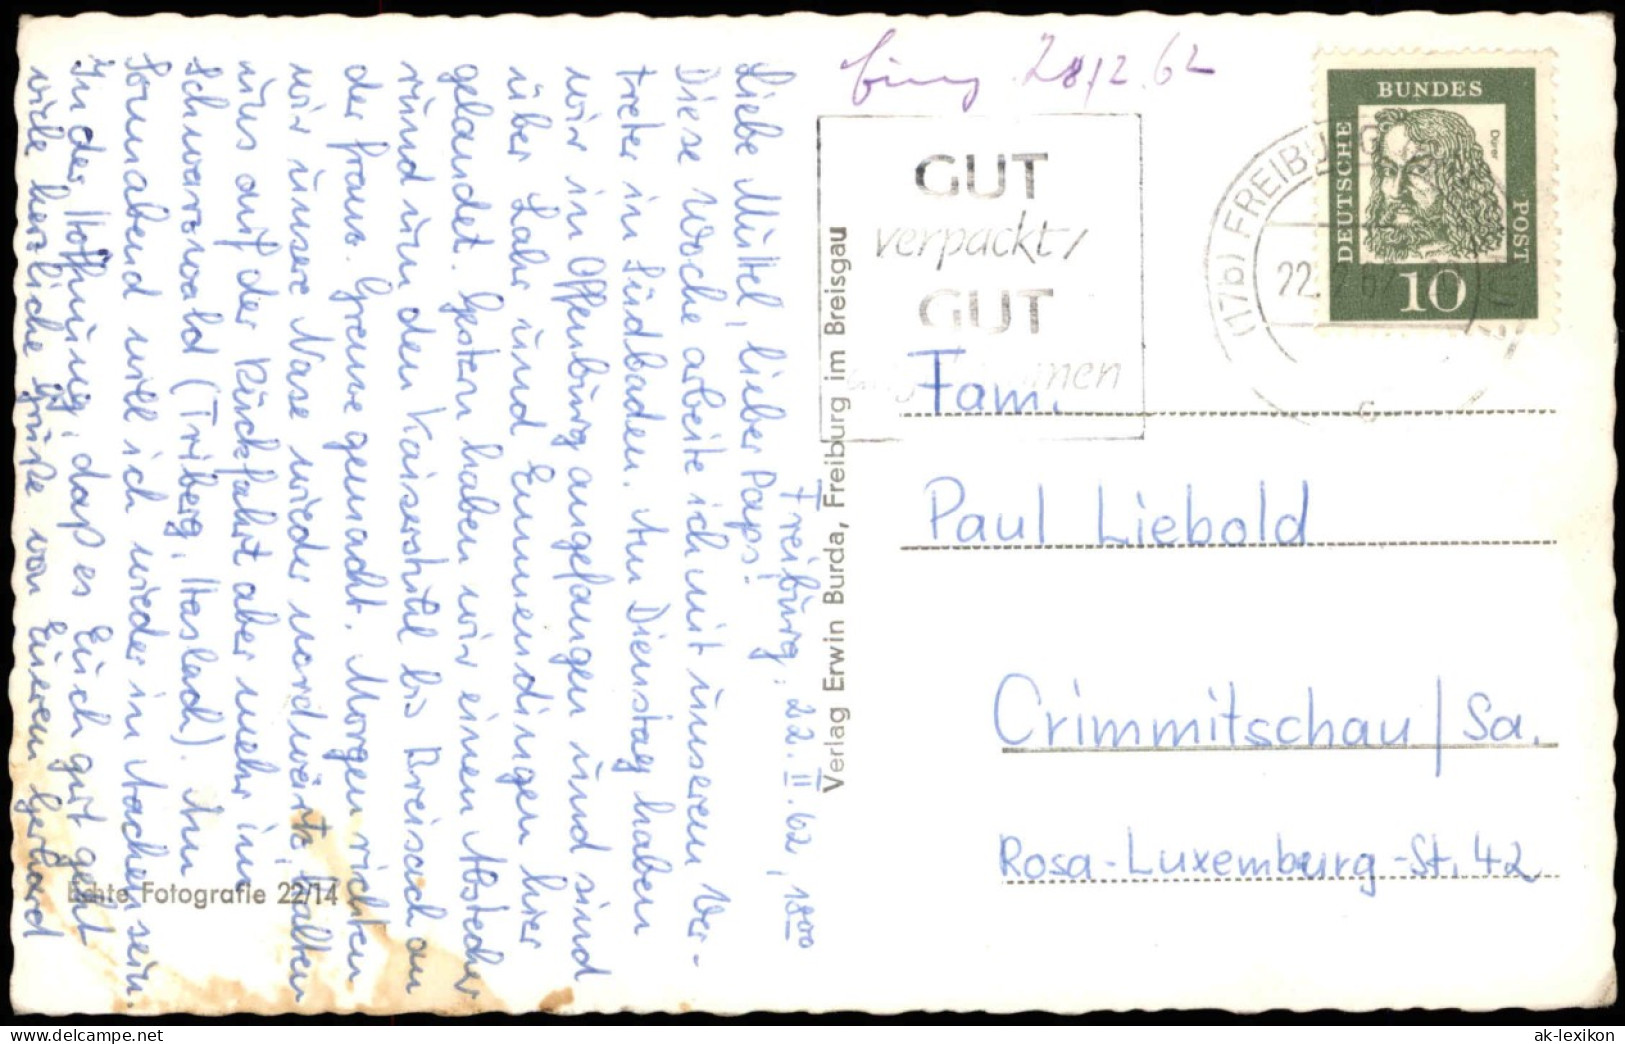 Freiburg, 22.II.62, 18⁰⁰
Liebe Muttel, lieber Paps!
Diese Woche arbeite ich mit unserem Ver-
treter in Südbaden. Am Dienstag haben
wir in Offenburg angefangen und sind
über Lahr und Emmendingen hier
gelandet. Gestern haben wir einen Abstecher
rund um den Kaiserstuhl bis Breisach an
der franz. Grenze gemacht. Morgen richten
wir unsere Nase wieder nordwärts, halten
uns auf der Rückfahrt aber mehr im
Schwarzwald (Triberg, Haslach). Am
Sonnabend will ich wieder in Aachen sein.
In der Hoffnung, daß es Euch gut geht
viele herzliche Grüße von Eurem Gerhard
Echte Fotografie 22/14
Verlag Erwin Burda, Freiburg im Breisgau
28/2.62
GUT
verpackt/
GUT
(17b) FREIBURG
22.2.62
c
BUNDES
DEUTSCHE
POST
Dürer
10
Fam.
Paul Liebold
Crimmitschau/Sa.
Rosa-Luxemburg-St. 42
delcampe.net
ak-lexikon